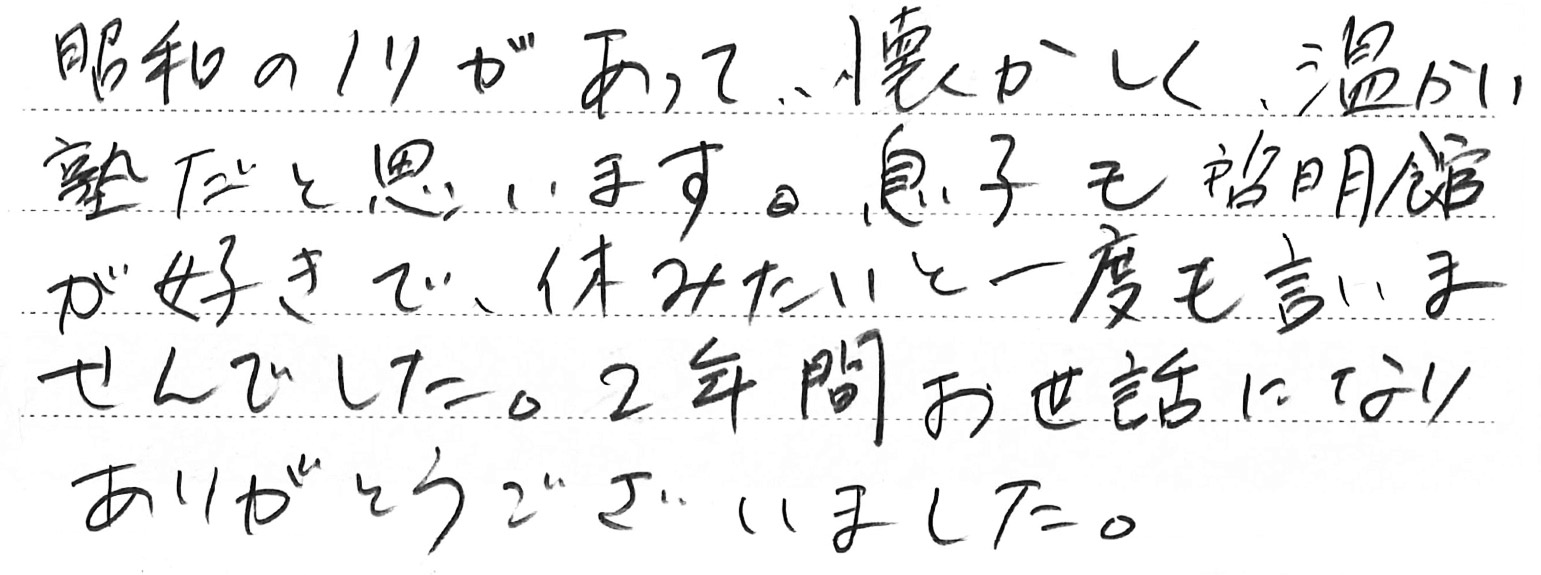 昭和のノリがあって、懐かしく、温かい
塾だと思います。息子も啓明館
が好きで、休みたいと一度も言いま
せんでした。2年間お世話になり
ありがとうございました。